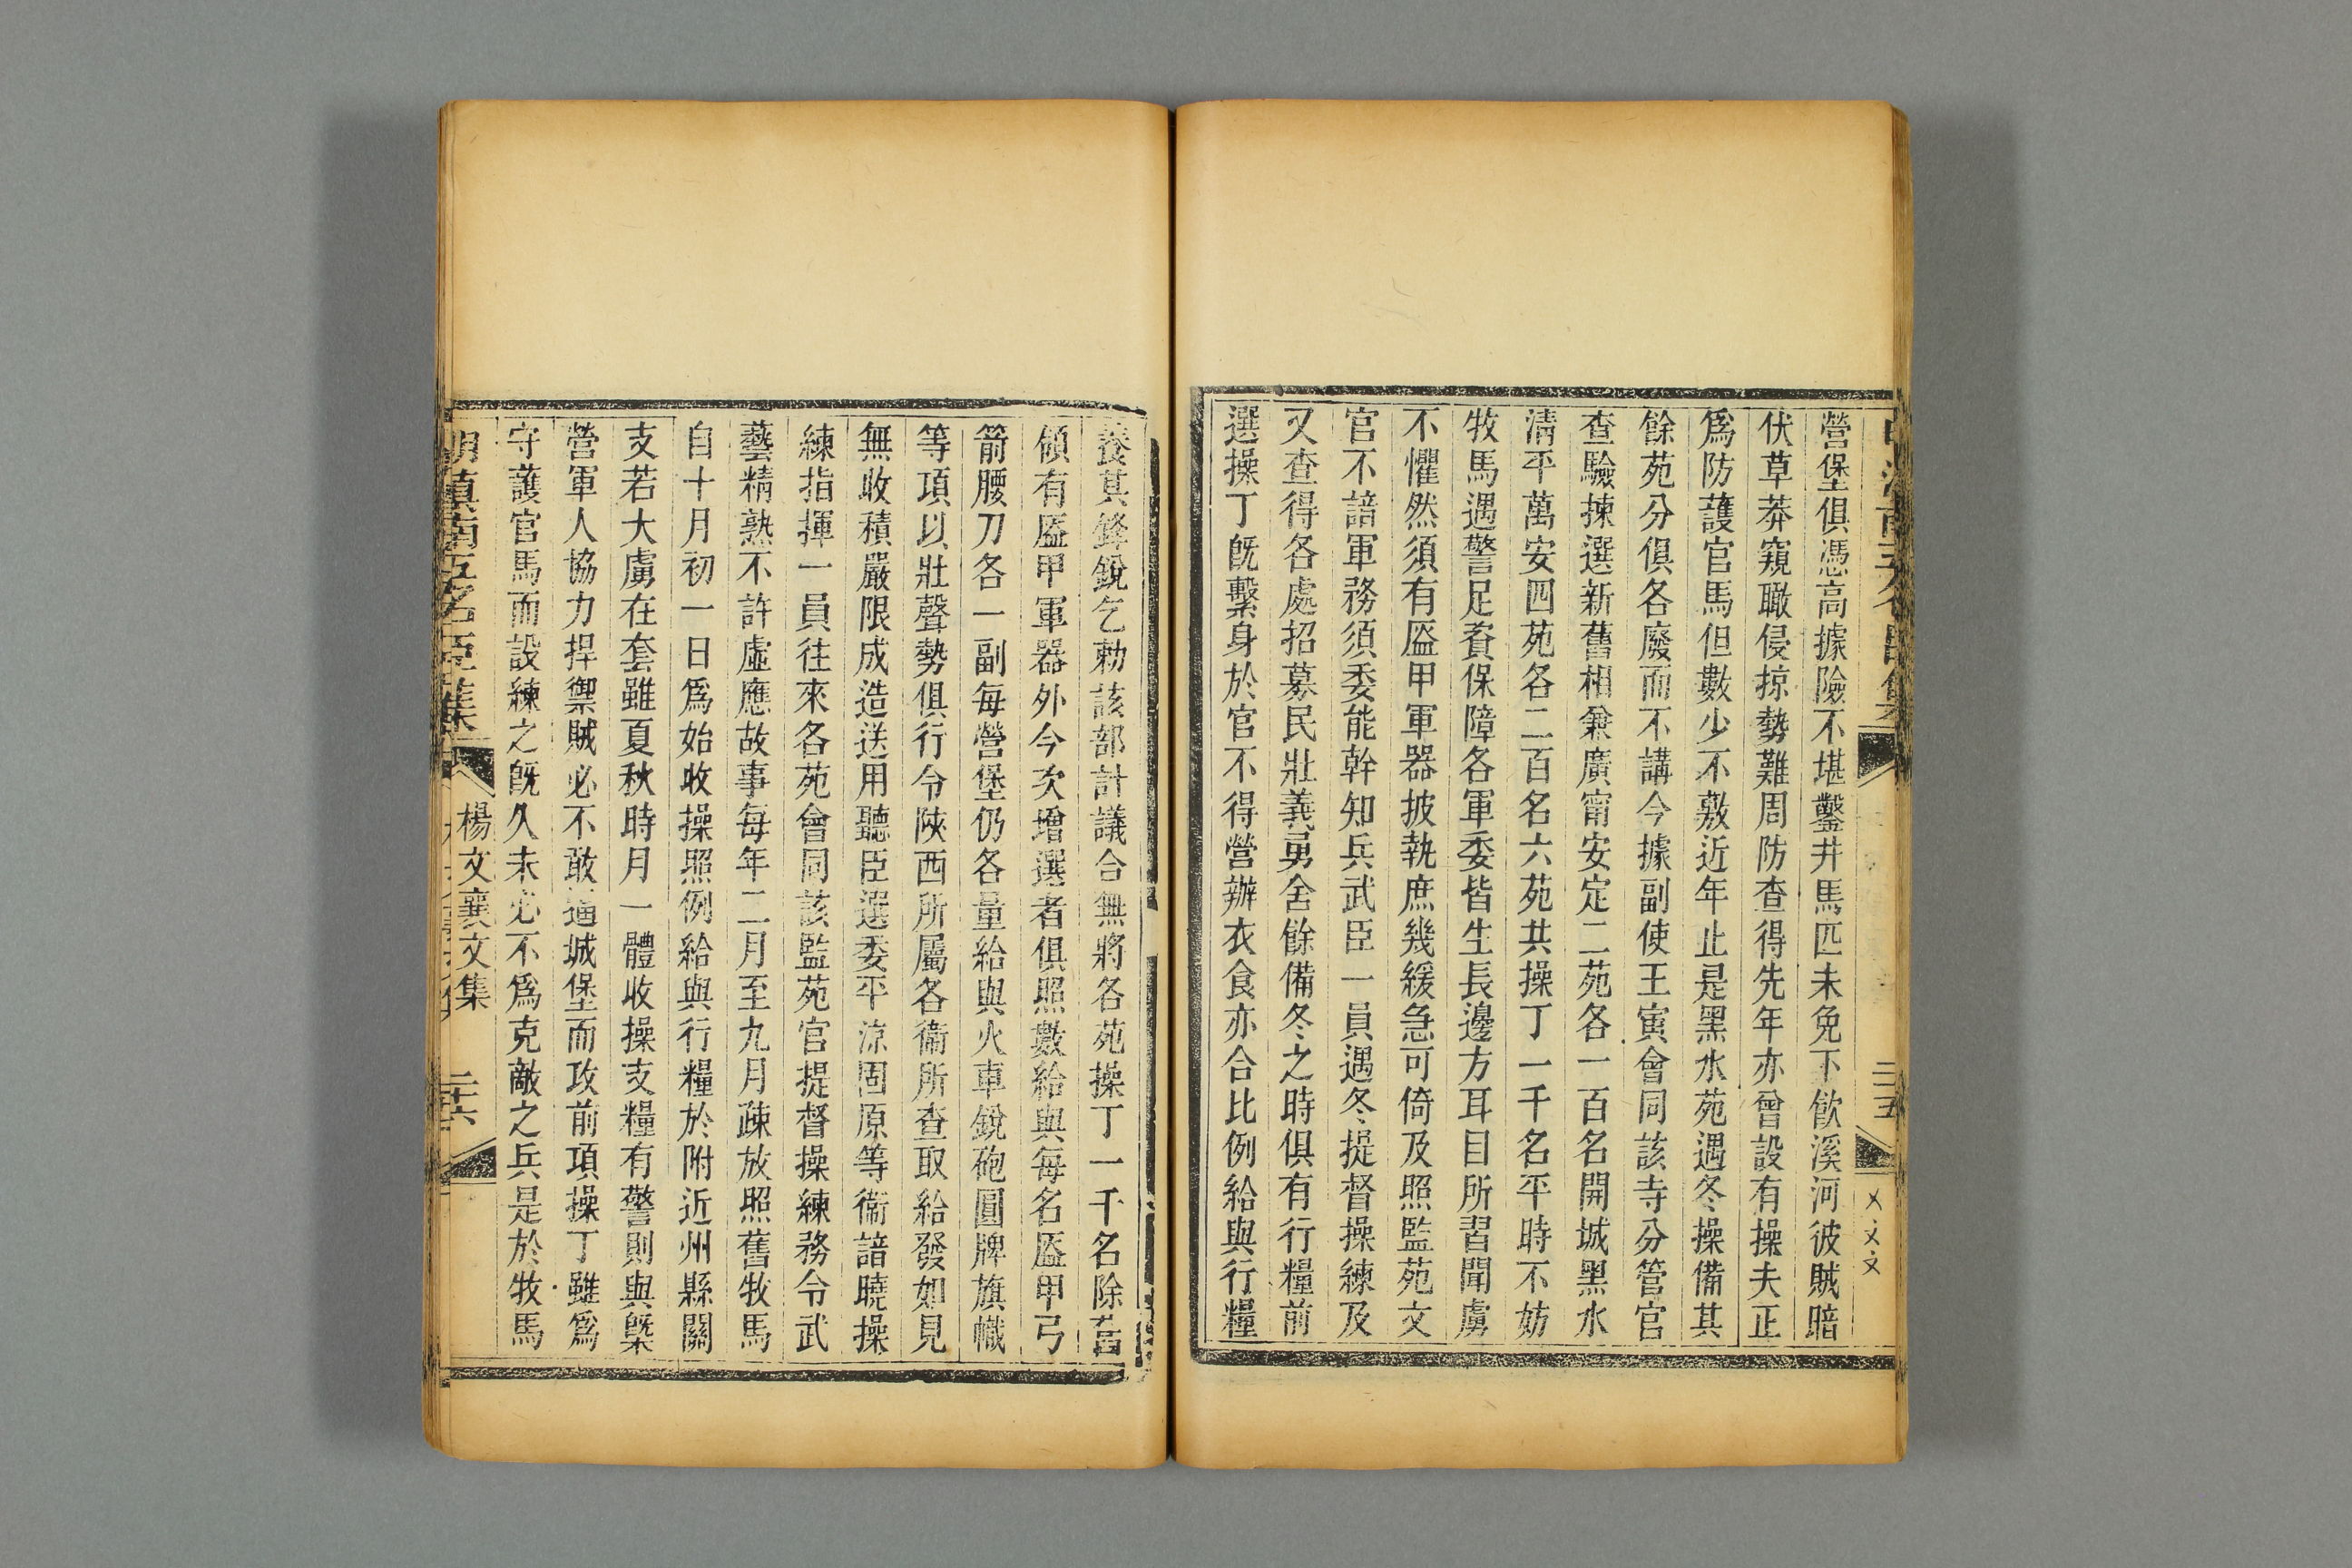 營堡俱憑高據險不堪鑿井馬匹未免下飲溪河彼賊暗
伏草莽窺瞰侵掠勢難周防查得先年亦曾設有操夫正
爲防護官馬但數少不敷近年止是黑水苑遇冬操備其
餘苑分俱各廢而不講今據副使王寅會同該寺分管官
查驗揀選新舊相兼廣甯安定二苑各一百名開城黑水
清平萬安四苑各二百名六苑共操丁一千名平時不妨
牧馬遇警足資保障各軍委皆生長邊方耳目所習聞虜
不懼然須有盔甲軍器披執庶幾緩急可倚及照監苑文
官不諳軍務須委能幹知兵武臣一員遇冬提督操練及
又查得各處招募民壯義勇舍餘備冬之時俱有行糧前
選操丁旣繫身於官不得營辦衣食亦合比例給與行糧
二五
養其鋒銳乞勅該部計議合無將各苑操丁一千名除舊
領有盔甲軍器外今次增選者俱照數給與每名盔甲弓
箭腰刀各一副每營堡仍各量給與火車銃砲圓牌旗幟
等項以壯聲勢俱行令陝西所屬各衞所查取給發如見
無收積嚴限成造送用聽臣選委平涼固原等衞諳曉操
練指揮一員往來各苑會同該監苑官提督操練務令武
藝精熟不許虛應故事每年二月至九月疎放照舊牧馬
自十月初一日爲始收操照例給與行糧於附近州縣關
支若大虜在套雖夏秋時月一體收操支糧有警則與槩
營軍人協力捍禦賊必不敢逼城堡而攻前項操丁雖爲
守護官馬而設練之旣久未必不爲克敵之兵是於牧馬
明滇南五名臣集
楊文襄文集
二十六